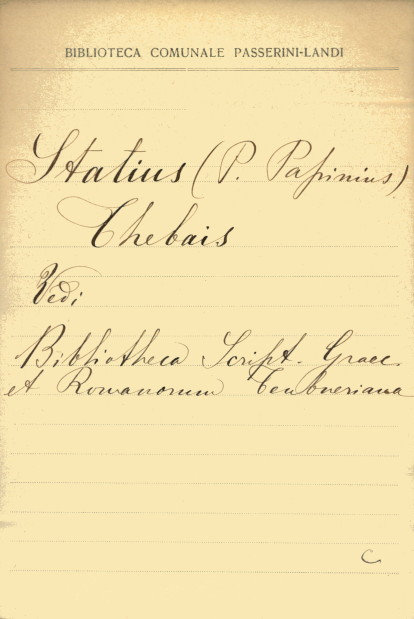 BIBLIOTECA COMUNALE PASSERINI-LANDI
Statius (P. Papinius)
Thebais
Vedi
Bibliotheca Script. Graec.
et Romanorum Teubneriana
C